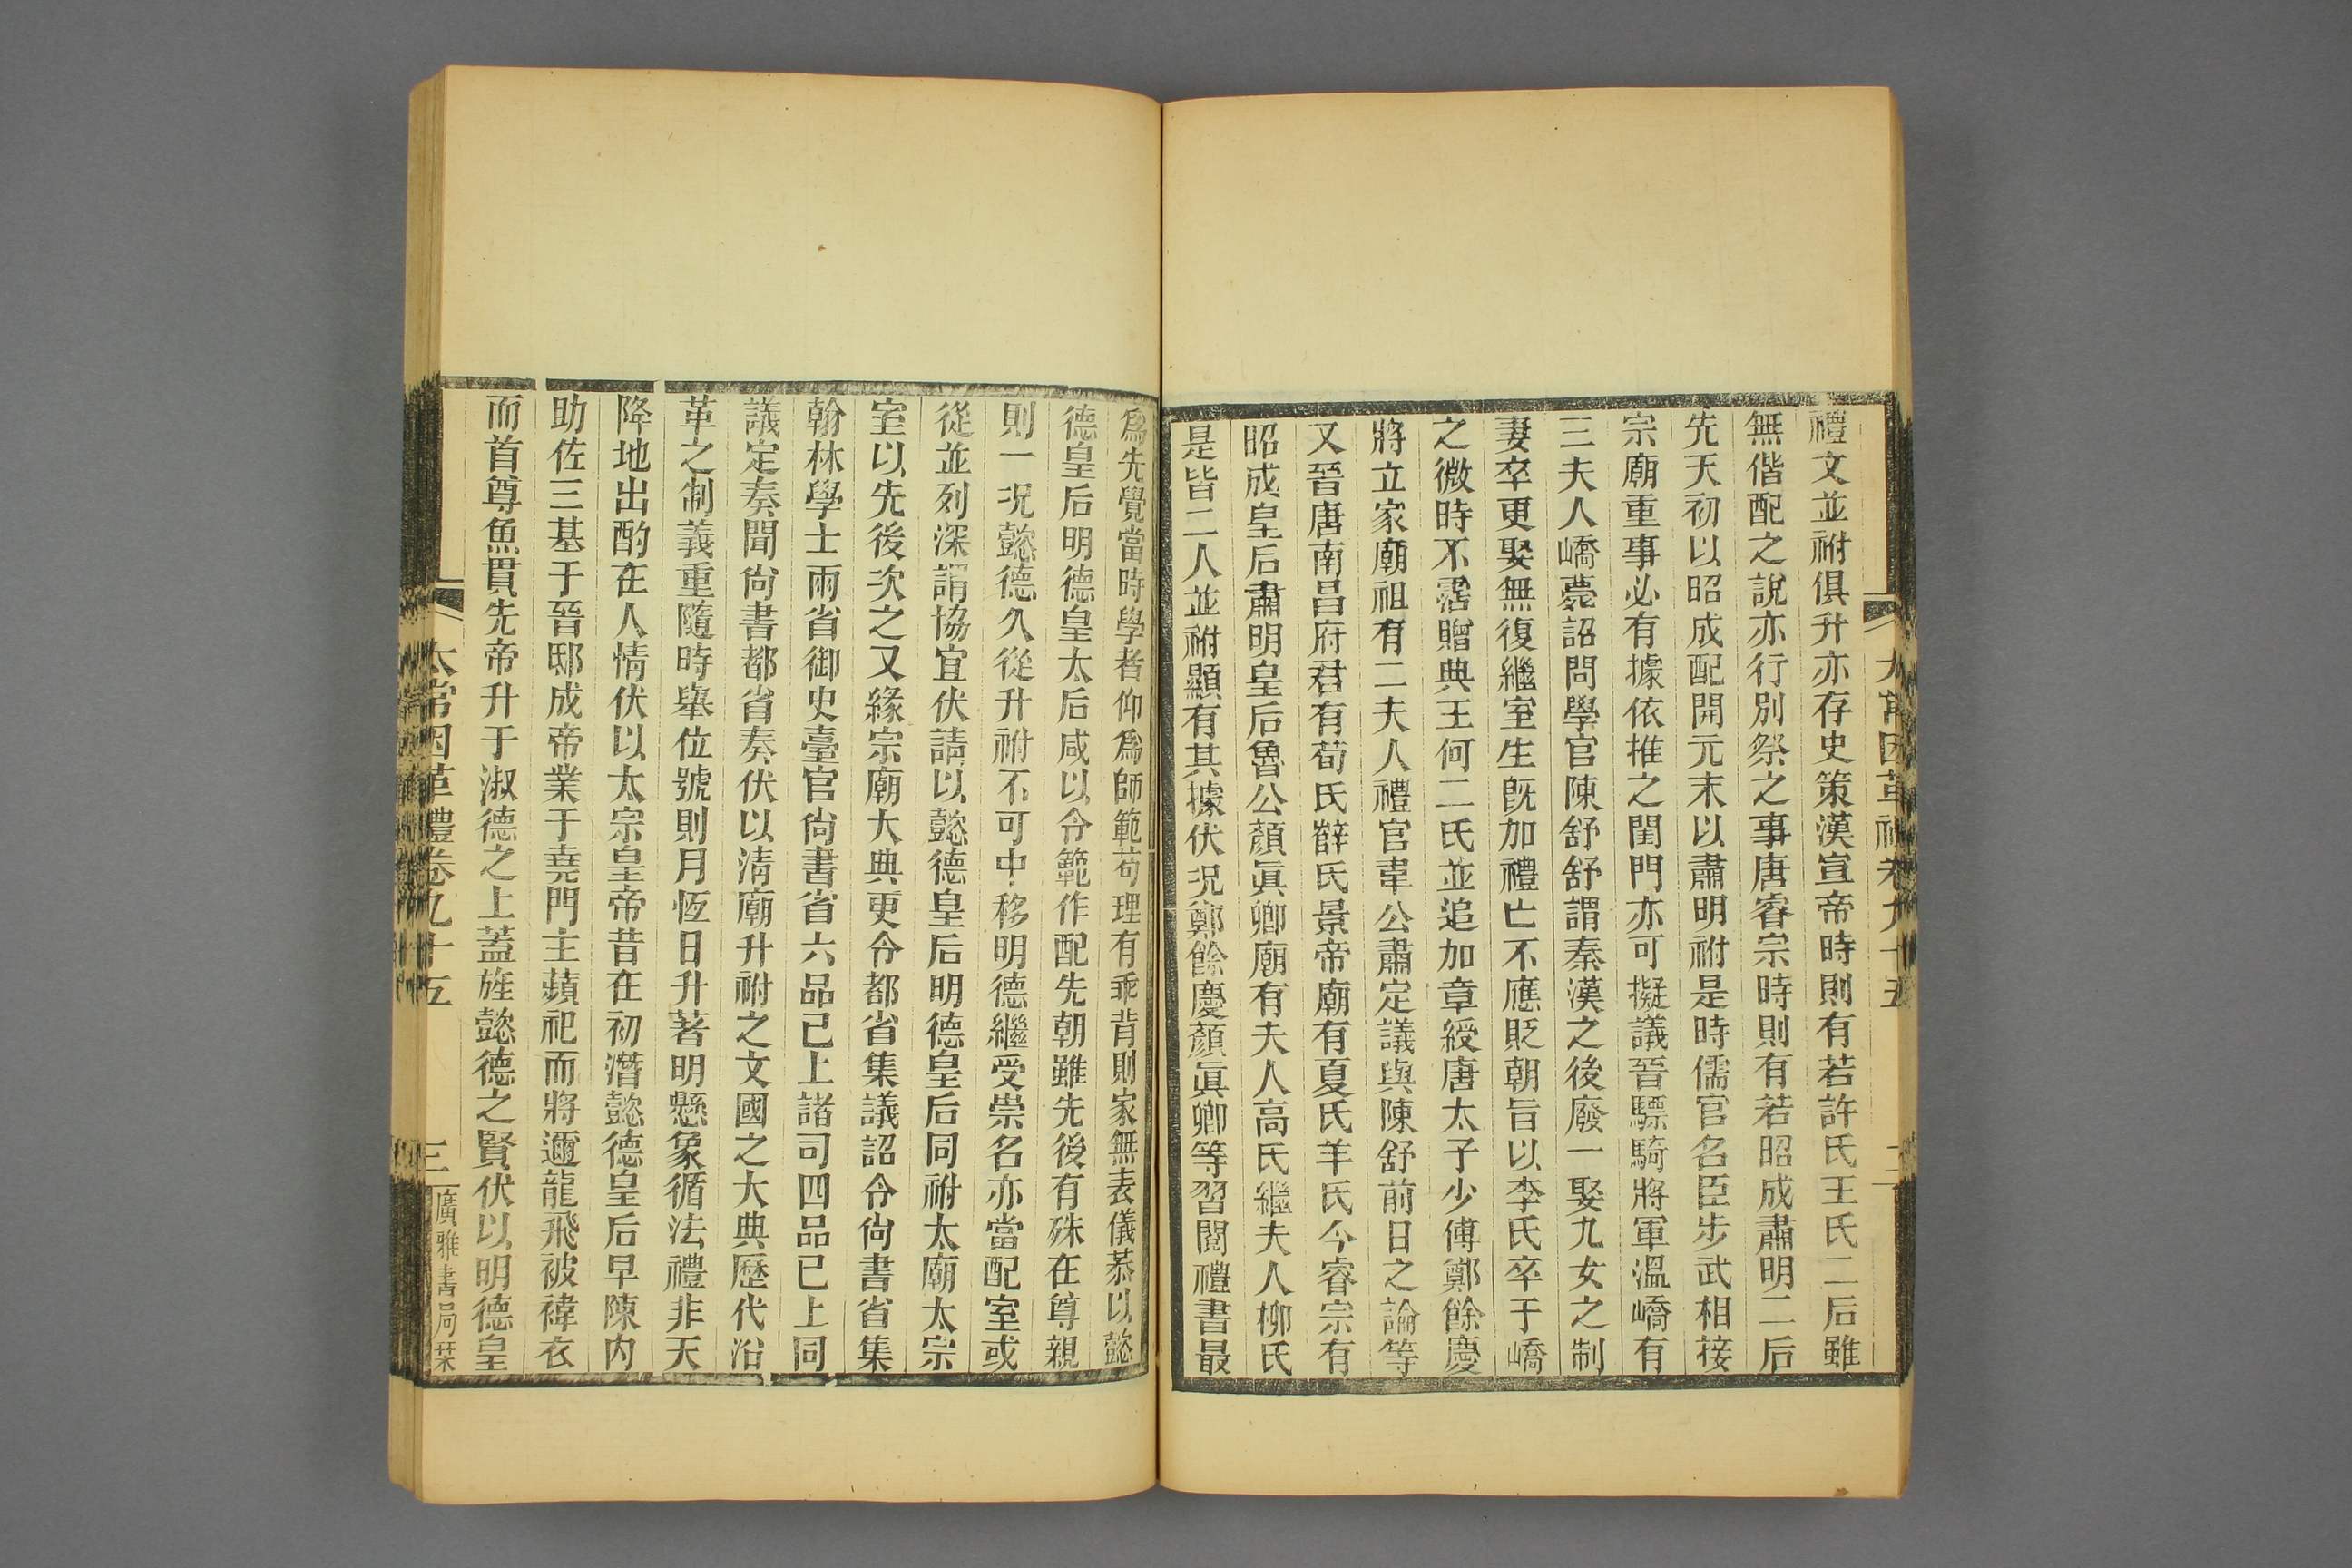 太常因革禮卷九十五
禮文並祔俱升亦存史策漢宣帝時則有若許氏王氏二后雖
無偕配之說亦行別祭之事唐睿宗時則有若昭成肅明二后
先天初以昭成配開元末以肅明祔是時儒官名臣步武相接
宗廟重事必有據依推之閨門亦可擬議晉驃騎將軍溫嶠有
三夫人嶠薨詔問學官陳舒舒謂秦漢之後廢一娶九女之制
妻卒更娶無復繼室生旣加禮亡不應貶朝旨以李氏卒于嶠
之微時不霑贈典王何二氏並追加章綬唐太子少傅鄭餘慶
將立家廟祖有二夫人禮官韋公肅定議與陳舒前日之論等
又晉唐南昌府君有荀氏薛氏景帝廟有夏氏羊氏今睿宗有
昭成皇后肅明皇后魯公顏眞卿廟有夫人高氏繼夫人柳氏
是皆二人並祔顯有其據伏况鄭餘慶顏眞卿等習閱禮書最
爲先覺當時學者仰爲師範苟理有乖背則家無表儀恭以懿
德皇后明德皇太后咸以令範作配先朝雖先後有殊在尊親
則一况懿德久從升祔不可中移明德繼受崇名亦當配室或
從並列深謂協宜伏請以懿德皇后明德皇后同祔太廟太宗
室以先後次之又緣宗廟大典更令都省集議詔令尙書省集
翰林學士兩省御史臺官尙書省六品已上諸司四品已上同
議定奏聞尙書都省奏伏以淸廟升祔之文國之大典歷代沿
革之制義重隨時舉位號則月恆日升著明懸象循法禮非天
降地出酌在人情伏以太宗皇帝昔在初潛懿德皇后早陳內
助佐三基于晉邸成帝業于堯門主蘋祀而將邇龍飛被褘衣
而首尊魚貫先帝升于淑德之上蓋旌懿德之賢伏以明德皇
太常因革禮卷九十五
三
廣雅書局栞